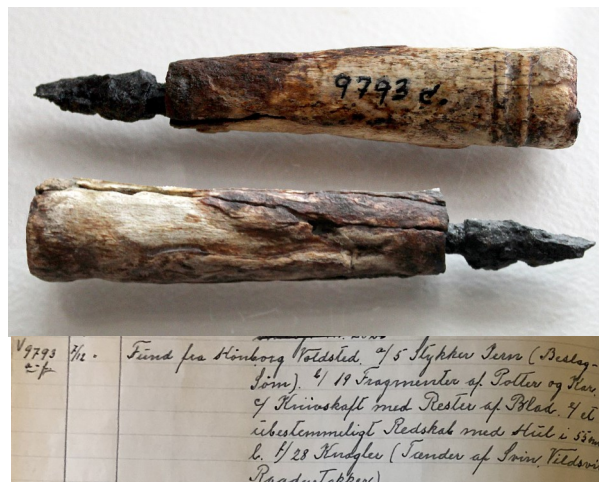 9793 d.
√9793 7/12. Fund fra Hönborg Voldsted. a/ 5 Stykker Jern (Beslag-
a-f
Söm). b/ 19 Fragmenter af Potter og Kar.
c/ Knivskaft med Rester af Blad. et
ubestemmeligt Redskab med Hul i 55 m
b. f/ 28 Knogler (Tænder af Svin, Vildsvi
Raadyrtakker)